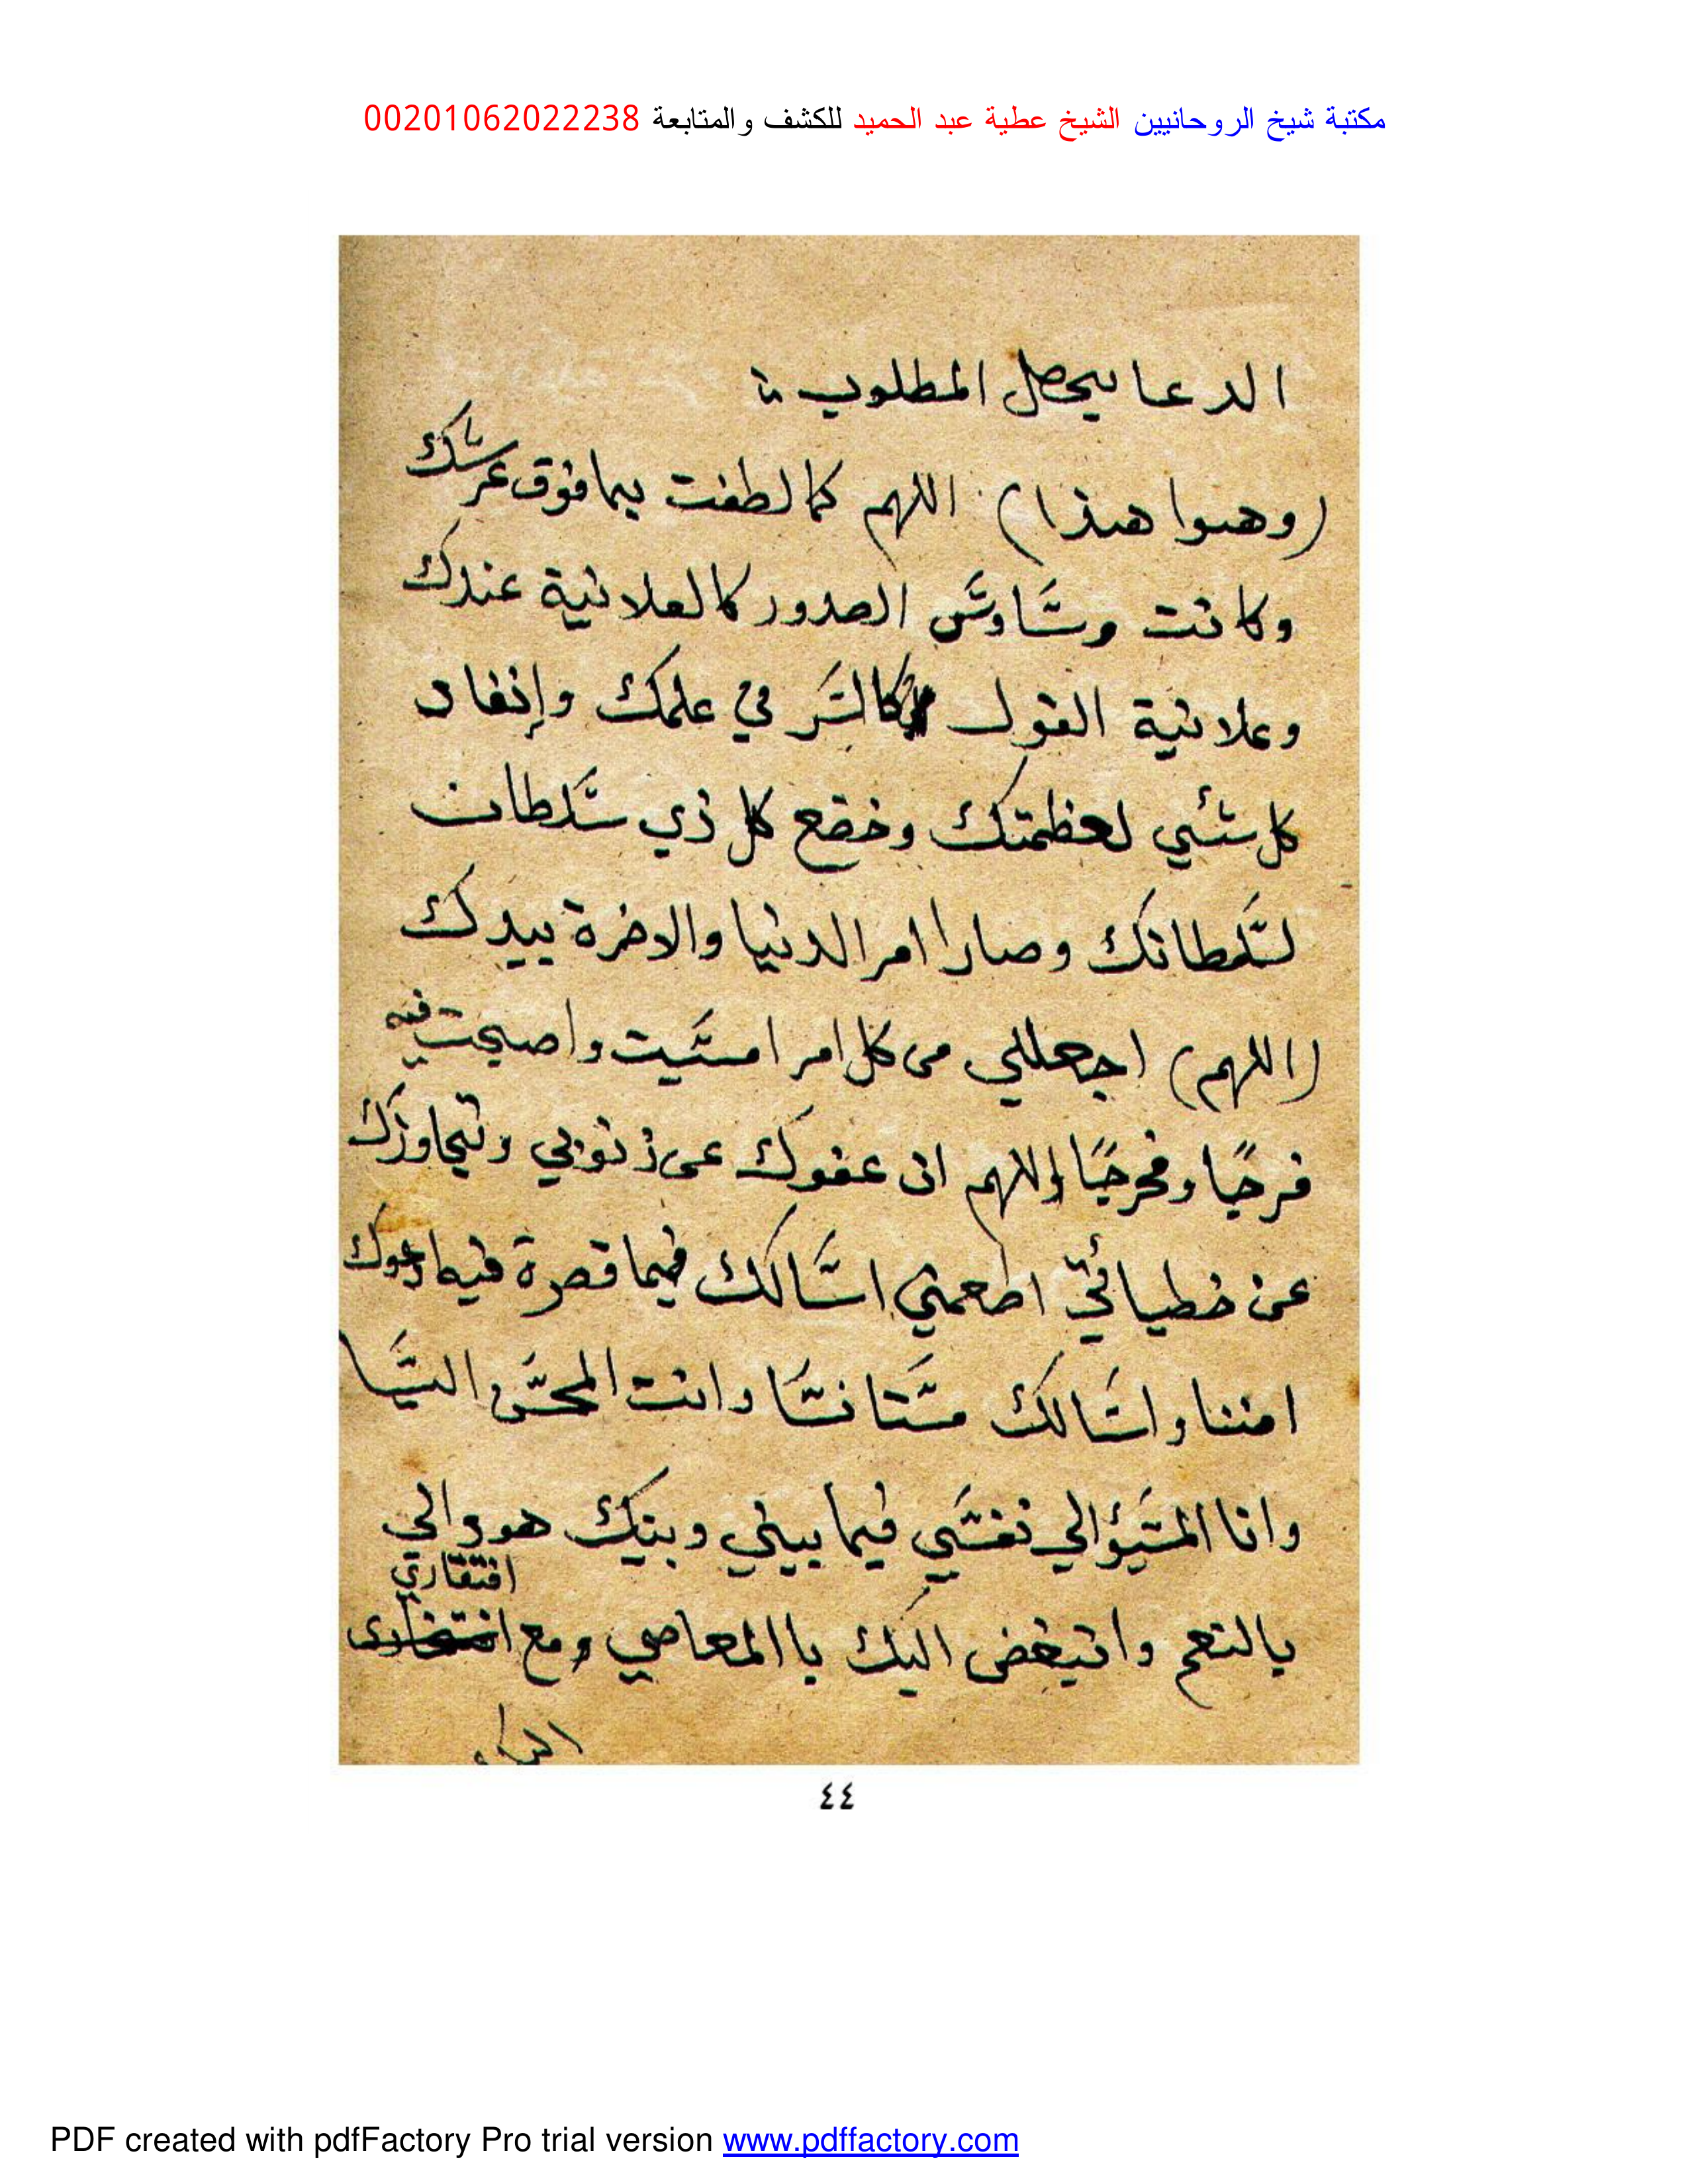 مكتبة شيخ الروحانيين الشيخ عطية عبد الحميد للكشف والمتابعة 00201062022238
الدعا يحصل المطلوب
(وهوا هذا) اللهم كما لطفت بما فوق عرشك
وكانت وساوس الصدور كالعلانية عندك
وعلانية القول كالسر في علمك وإنقاد
كل شئي لعظمتك وخضع كل ذي سلطان
لسلطانك وصارا امر الدنيا والاخرة بيدك
(اللهم) اجعللي من كل امر امسيت واصبحت فيه
فرجًا ومخرجًا اللهم ان عفوك عن ذنوبي وتجاوزك
عن خطيائي اطعمني اسالك فيما قصرة فيه ادعوك
امننا واسالك مستانسًا وانت المحسن اليا
وانا المسيؤ الي نفسي فيما بيني وبينك هو والي
بالنعم واتبغض اليك باالمعاصي ومع
افتقاري
اليك
٤٤
PDF created with pdfFactory Pro trial version www.pdffactory.com